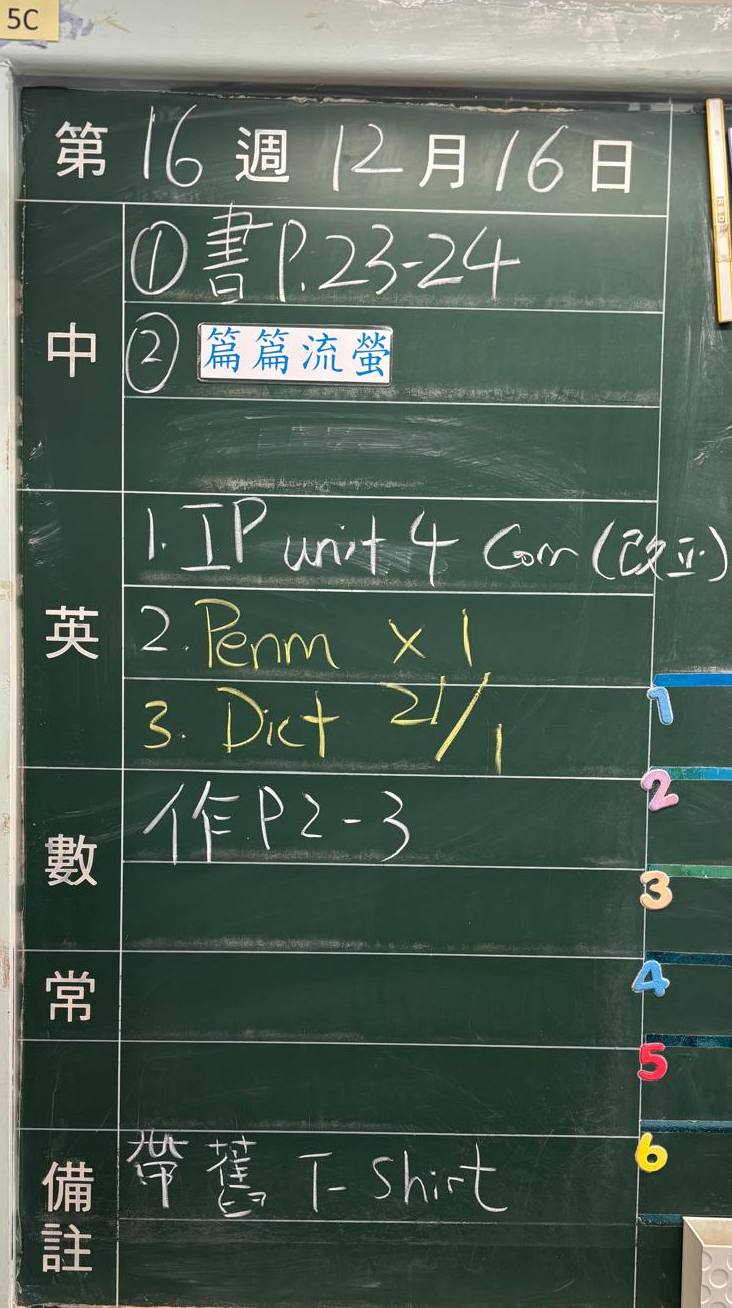 5C
第 16 週 12 月 16 日
中
① 書 P.23-24
② 篇篇流螢
英
1. IP unit 4 Corr (改正)
2. Penm × 1
3. Dict 21/1
數
作 P 2-3
常
備註
帶舊 T-Shirt
1
2
3
4
5
6